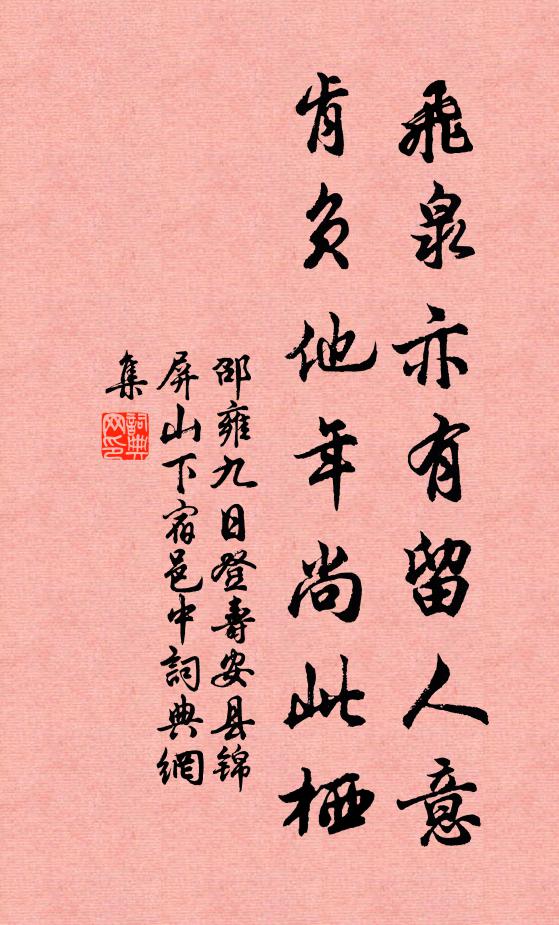 飛泉亦有留人意
肯負他年尚此栖
邵雍九日登壽安县锦
屏山下宿邑中詞典網
集
詞典
网印